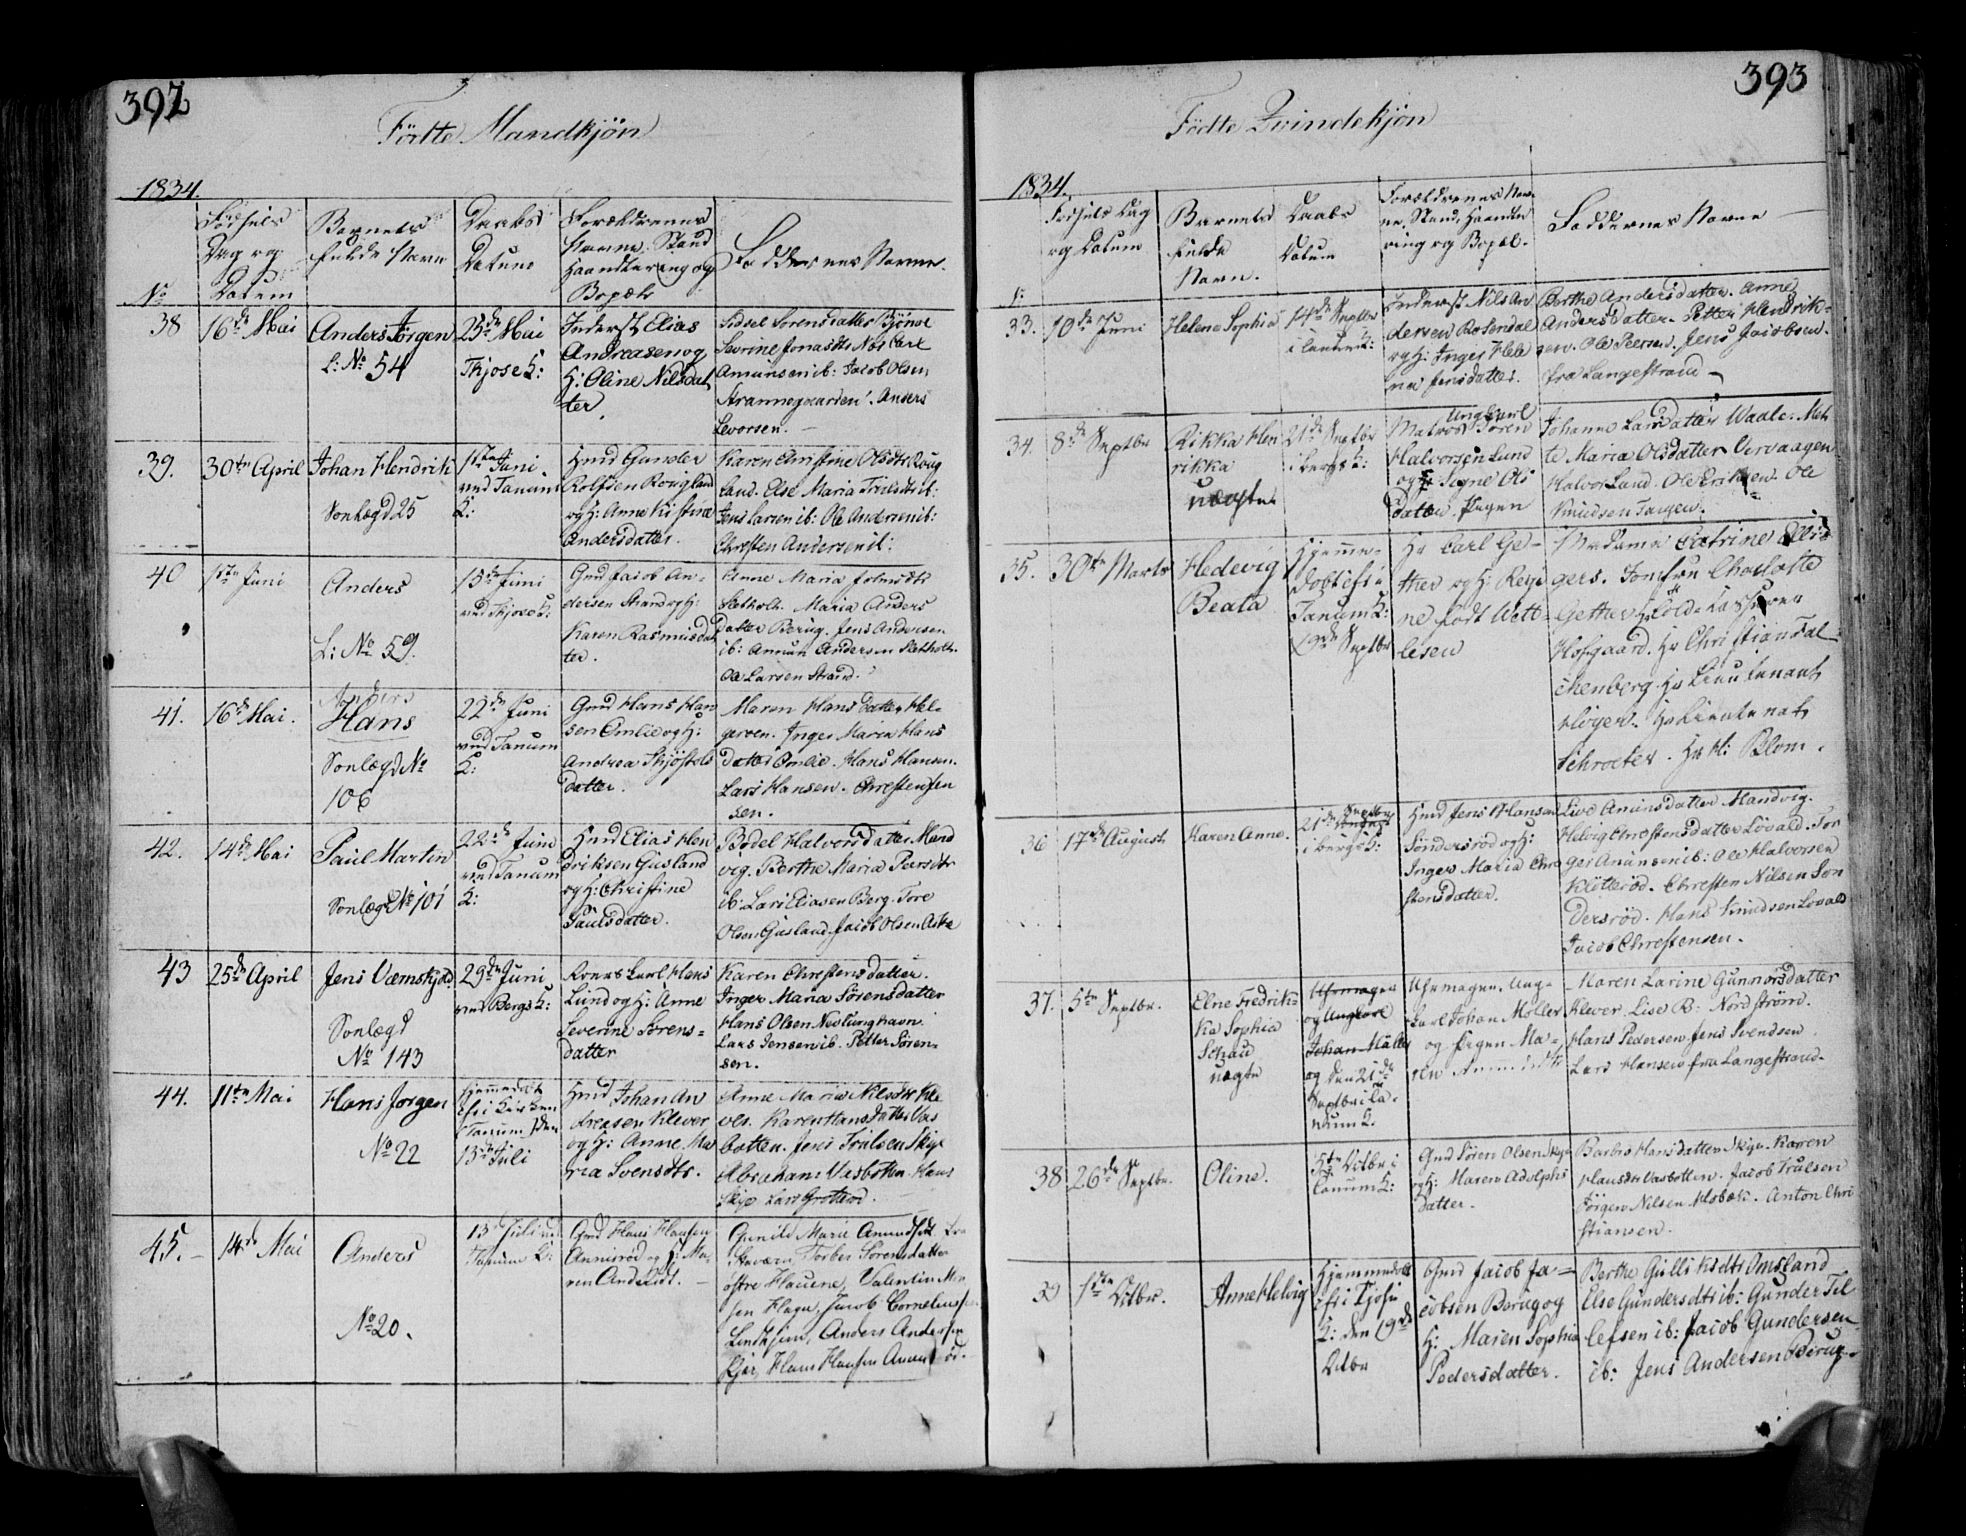 392
Fødte Mandkjön
1834.
Fødsels Dag og Datum
Barnets fulde Navn
Daabs Datum
Forældrenes Navne, Stand Haandtering og Bopæl
Faddernes Navne.
No
38
16de Mai
Anders Jörgen
L: No 54
25de Mai
Thjose K:
Inderst Elias
Andreasen og
H: Oline Nilsdat
ter
Sidsel Sörensdatter Bjönnes
Sevrine Jonasdtr Næs Carl
Amunsen ib: Jacob Olsen
Anders
Levorsen.
39.
30te April
Johan Hendrik
Sonlægd 25
1ste Juni
ved Tanum
K:
Hmd Gunder
Rolfsen Rougland
og H: Anne Kistine
Andersdatter.
Karen Christine Olsdtr Roug
land. Else Maria
Jens Larsen ib: Ole Andersen ib:
Christen Andersen ib:
40
1ste Juni
Anders
L: No 59.
15de Juni
ved Thjose K:
Gmd Jacob An-
dersen Strand og H:
Karen Rasmusdat
ter.
Anne Maria
Maria Anders
datter Berug. Jens Andersen
ib: Amun Andersen
Ole Larsen Strand.
41.
16de Mai.
Anders
Hans
Sonlægd No
106
22de Juni
ved Tanum
K:
Gmd Hans Han
sen Omlie og H:
Andrea
datter.
Maren Hansdatter Hel-
geroen. Inger Maria Hans
datter Omlie. Hans Hansen.
Lars Hansen. Christen Jen
sen.
42.
14de Mai
Paul Martin
Sonlægd No 101
22de Juni
ved Tanum
K:
Hmd Elias Hen
driksen Gusland
og H: Christine
Paulsdatter.
Bodel Halvorsdatter Mand
vig. Berthe Maria Peersdtr
ib: Lars Eliasen Berg. Tore
Olsen Gusland. Jacob Olsen Aske
43
25de April
Jens Værnskjold
Sonlægd
No 143
29de Juni
ved Bergs K:
Hans
Lund og H: Anne
Severine Sörens-
datter
Karen Christensdatter.
Inger Maria Sörensdatter
Hans Olsen Nevlunghavn
Lars Jensen ib. Petter Sören-
sen.
44.
11te Mai
Hans Jörgen
No 22
Hjemmedöbt
Tanum den
13de Juli
Hmd Johan An
dreasen Klever
og H: Anne Ma
ria Svensdtr.
Anne Maria Nilsdtr Kle
ver. Karen Hansdatter Vas
botten. Jens Trulsen Skije
Abraham Vasbotten. Hans
Skije Lars Grottrod.
45.
14de Mai
Anders
No 20.
13de Juli ved
Tanum K:
Gmd Hans Hansen
Amunrød og H: Ma-
ren Andersdt.
Gunild Marie Amundsdt fra
Staværn, Torber Sörensdatter
østre Haunen, Valentin Mon
sen Hagn, Jacob Corneliussen
Anders Andersen
Hans Hansen
393
Fødte Qvindekjön
1834.
Fødsels Dag og Datum
Barnets fulde Navn.
Daabs Datum
Forældrenes Nav-
ne, Stand, Haandte
ring og Bopæl.
Faddernes Navne
N:
33.
10de Juni
Helene Sophia
14de Septbr
i Tanum K:
Inderst Nils An
dersen Rosendal
og H: Inger Hele
ne Jensdatter.
Berthe Andersdatter. Anne
Andersdatter. Petter Hendrik-
sen. Ole Peersen. Jens Jacobsen.
fra Langestrand
34.
8de Septbr
Rikka Hen
rikka
uægte
21de Septbr
i Bergs K:
Ungkarl
Matros Sören
Halvorsen Lund
og Signe Ols
datter. Pigen
Johanne Larsdatter Waale. Met
te Maria Olsdatter Oervaagen
Halvor Lund. Ole Eriksen. Ole
Knudsen Tangen.
35.
30te Marts
Hedevig
Beata
Hjemme-
döbt efs i
Tanum K:
19de Septbr
Hr Carl Ge-
ther og H: Regi
ne født Wett-
lesen
Madame Catrine
gers. Jomfru Charlotte
Gether
Hofgaard. Hr Christian
ckenberg. Hr Lieutenant
Höyer. Hr Lieutenat
Schroeter. Hr H: Blom.
36
17de August
Karen Anne.
21de Septbr
i Bergs K:
Hmd Jens Hansen
Söndersröd og H:
Inger Maria Chri
stensdatter.
Live Amunsdatter Mandvig.
Helvig Christensdatter Lövald. Tor
ger Anunsen ib: Ole Halvorsen
Klötteröd. Christen Nilsen Son
dersröd. Hans Knudsen Lovald
Jacob Christensen.
37.
5te Septbr.
Elne Fredrik-
ka Sophia
uægte
Uhrmager
og Ungkarl
Johan Müller
og den 21de
Septbr i Ta-
num K.
Uhrmager, Ung-
karl Johan Möller
og Pigen Ma-
ren
Maren Larine Gunnorsdatter
Klever. Lise B: Nordström.
Hans Pedersen, Jens Svendsen
Lars Hansen fra Langestrand.
38
26de Septbr.
Oline.
5te Octbr i
Tanum K:
Gmd Sören Olsen Skije
og H: Maren Adolphs
datter.
Barbro Hansdatter Skije. Karen
Hansdtr Vasbotten. Jacob Trulsen
Jörgen Nilsen. Anton Chri
stiansen.
39
1ste Octbr.
Anne Helvig
Hjemmedöbt
efs i Tjose
K: den 19de
Octbr
Gmd Jacob Ja-
cobsen Berug og
H: Maren Sophia
Pedersdatter.
Berthe Gulliksdtr Omsland
Else Gundersdtr ib: Gunder Til
lefsen ib: Jacob Gundersen
ib: Jens Andersen Berug.